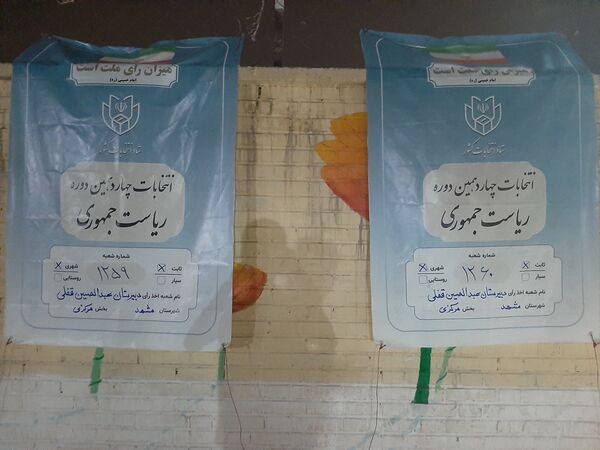 میزان رای ملت است
امام خمینی (ره)
ستاد انتخابات کشور
انتخابات چهاردهمین دوره
ریاست جمهوری
شماره شعبه
ثابت X شهری X
۱۲۵۹
سیار روستایی
نام شعبه اخذ رای دبیرستان عبدالحسین قفلی
شهرستان مشهد بخش مرکزی
میزان رای ملت است
امام خمینی (ره)
ستاد انتخابات کشور
انتخابات چهاردهمین دوره
ریاست جمهوری
شماره شعبه
ثابت X شهری X
۱۲۶۰
سیار روستایی
نام شعبه اخذ رای دبیرستان عبدالحسین قفلی
شهرستان مشهد بخش مرکزی